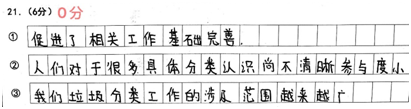 21. (6分) 0分
① 促进了相关工作基础完善.
② 人们对于很多具体分类认识尚不清晰参与度小
③ 我们垃圾分类工作的涉及范围越来越广